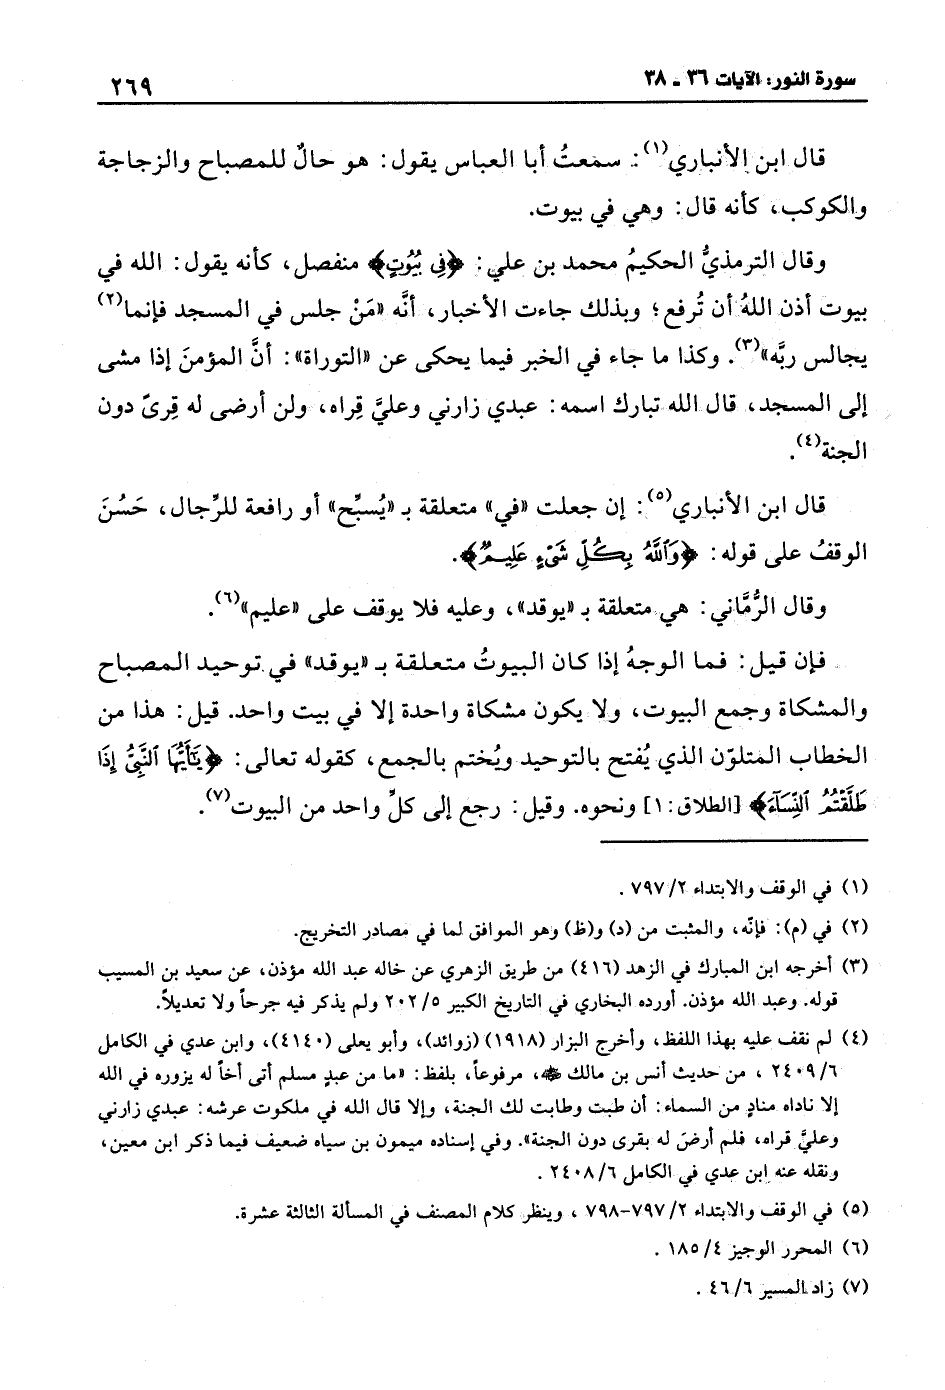 سورة النور: الآيات ٣٦ ـ ٣٨
٢٦٩
قال ابن الأنباري(١): سمعتُ أبا العباس يقول: هو حالٌ للمصباح والزجاجة
والكوكب، كأنه قال: وهي في بيوت.
وقال الترمذيُّ الحكيمُ محمد بن علي: ﴿فِى بُيُوتٍ﴾ منفصل، كأنه يقول: الله في
بيوت أذن اللهُ أن تُرفع؛ وبذلك جاءت الأخبار، أنَّه «مَنْ جلس في المسجد فإنما(٢)
يجالس ربَّه»(٣). وكذا ما جاء في الخبر فيما يحكى عن «التوراة»: أنَّ المؤمنَ إذا مشى
إلى المسجد، قال الله تبارك اسمه: عبدي زارني وعليَّ قِراه، ولن أرضى له قِرىً دون
الجنة(٤).
قال ابن الأنباري(٥): إن جعلت «في» متعلقة بـ «يُسبِّح» أو رافعة للرِّجال، حَسُنَ
الوقفُ على قوله: ﴿وَٱللَّهُ بِكُلِّ شَىْءٍ عَلِيمٌ﴾.
وقال الرُّمَّاني: هي متعلقة بـ «يوقد»، وعليه فلا يوقف على «عليم»(٦).
فإن قيل: فما الوجهُ إذا كان البيوتُ متعلقة بـ «يوقد» في توحيد المصباح
والمشكاة وجمع البيوت، ولا يكون مشكاة واحدة إلا في بيت واحد. قيل: هذا من
الخطاب المتلوّن الذي يُفتح بالتوحيد ويُختم بالجمع، كقوله تعالى: ﴿يَٰٓأَيُّهَا ٱلنَّبِىُّ إِذَا
طَلَّقْتُمُ ٱلنِّسَآءَ﴾ [الطلاق: ١] ونحوه. وقيل: رجع إلى كلِّ واحد من البيوت(٧).
(١) في الوقف والابتداء ٢/ ٧٩٧ .
(٢) في (م): فإنّه، والمثبت من (د) و(ظ) وهو الموافق لما في مصادر التخريج.
(٣) أخرجه ابن المبارك في الزهد (٤١٦) من طريق الزهري عن خاله عبد الله مؤذن، عن سعيد بن المسيب
قوله. وعبد الله مؤذن. أورده البخاري في التاريخ الكبير ٥/ ٢٠٢ ولم يذكر فيه جرحاً ولا تعديلاً.
(٤) لم نقف عليه بهذا اللفظ، وأخرج البزار (١٩١٨) (زوائد)، وأبو يعلى (٤١٤٠)، وابن عدي في الكامل
٦/ ٢٤٠٩ ، من حديث أنس بن مالك ﷺ، مرفوعاً، بلفظ: «ما من عبدٍ مسلم أتى أخاً له يزوره في الله
إلا ناداه منادٍ من السماء: أن طبت وطابت لك الجنة، وإلا قال الله في ملكوت عرشه: عبدي زارني
وعليَّ قراه، فلم أرضَ له بقرى دون الجنة». وفي إسناده ميمون بن سياه ضعيف فيما ذكر ابن معين،
ونقله عنه ابن عدي في الكامل ٦/ ٢٤٠٨ .
(٥) في الوقف والابتداء ٢/ ٧٩٧-٧٩٨ ، وينظر كلام المصنف في المسألة الثالثة عشرة.
(٦) المحرر الوجيز ٤/ ١٨٥ .
(٧) زاد المسير ٦/ ٤٦ .